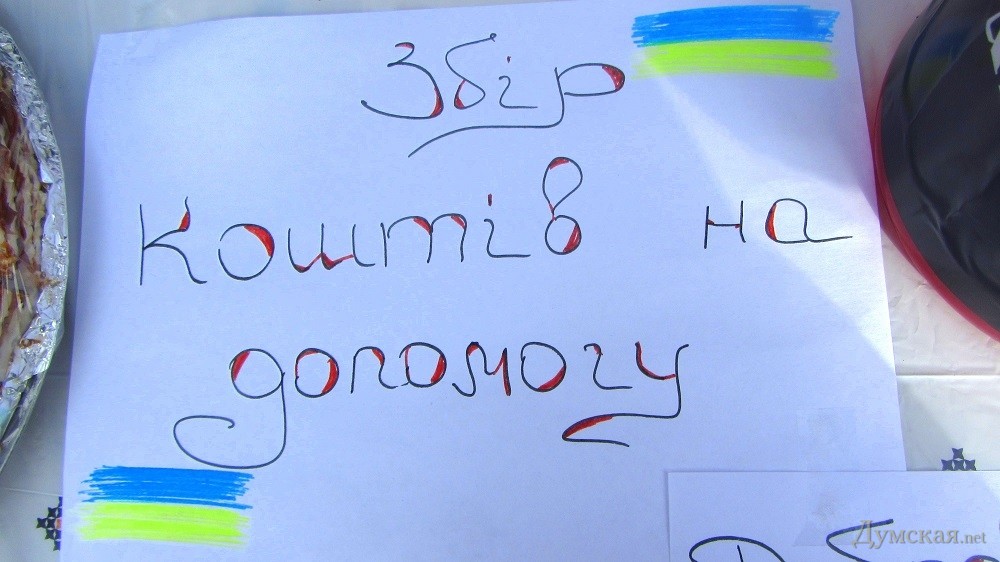 Збір
коштів на
допомогу
Думская.net